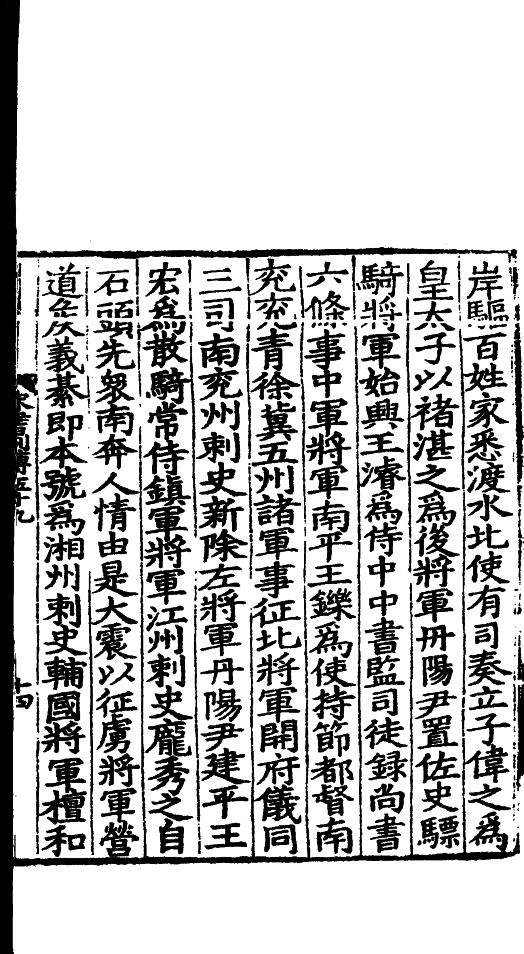 岸驅百姓家悉渡水北使有司奏立子偉之爲
皇太子以褚湛之爲後將軍丹陽尹置佐史驃
騎將軍始興王濬爲侍中中書監司徒錄尚書
六條事中軍將軍南平王鑠爲使持節都督南
兖兖青徐冀五州諸軍事征北將軍開府儀同
三司南兖州刺史新除左將軍丹陽尹建平王
宏爲散騎常侍鎮軍將軍江州刺史龐秀之自
石頭先衆南奔人情由是大震以征虜將軍營
道侯義綦即本號爲湘州刺史輔國將軍檀和
宋書列傳五十九
十四